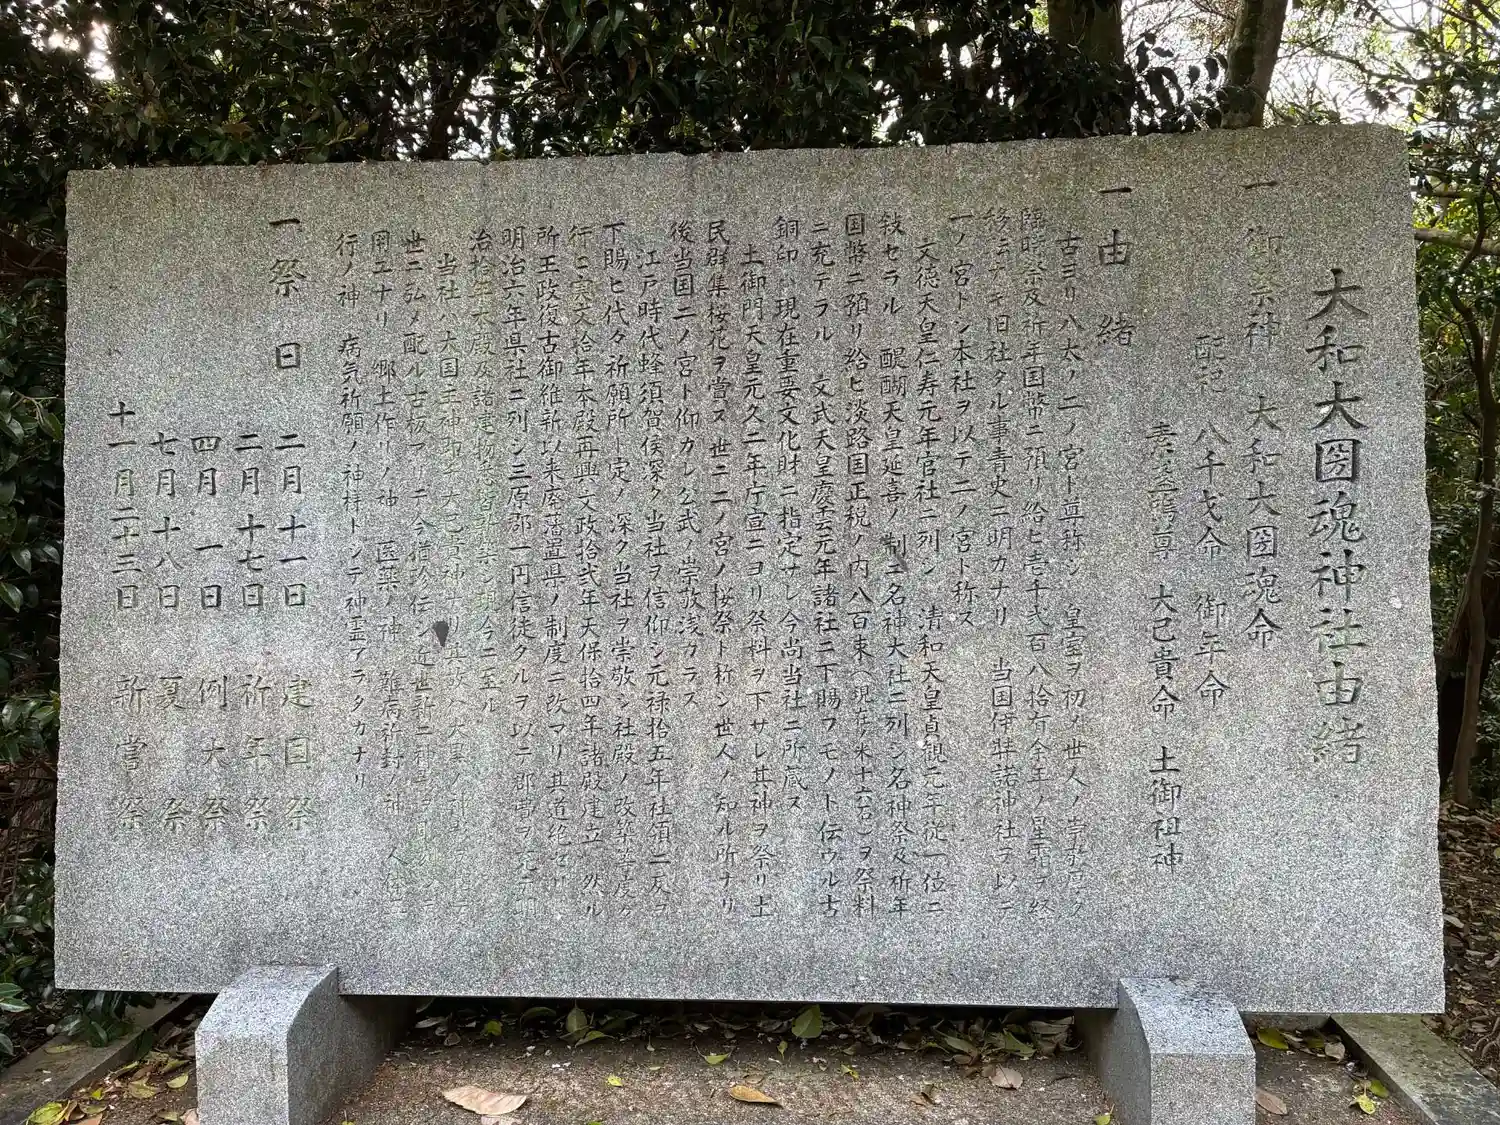 大和大圀魂神社由緒
一 御祭神 大和大圀魂命
配祀 八千戈命 御年命
素盞鳴尊 大己貴命 土御祖神
一 由緒
古ヨリ八太ノ二ノ宮ト尊称シ 皇室ヲ初メ世人ノ崇敬
臨時祭及祈年国幣ニ預リ給ヒ壱千弐百八拾有余年ノ星霜ヲ経
旧社タル事青史ニ明カナリ 当国伊弉諾神社ヲ以テ
一ノ宮トシ本社ヲ以テ二ノ宮ト称ス
文徳天皇仁寿元年官社ニ列シ 清和天皇貞観元年従一位ニ
叙セラル 醍醐天皇延喜ノ制ニ名神大社ニ列シ名神祭及祈年
国幣ニ預リ給ヒ淡路国正税ノ内八百束(現在ノ米十六石)ヲ祭料
ニ充テラル 文武天皇慶雲元年諸社ニ下賜フモノト伝ウル古
銅印ハ現在重要文化財ニ指定サレ今尚当社ニ所蔵ス
土御門天皇元久二年庁宣ニヨリ祭料ヲ下サレ其神ヲ祭リ土
民群集桜花ヲ賞ス 世ニ二ノ宮ノ桜祭ト称シ世人ノ知ル所ナリ
後当国二ノ宮ト仰カレ公武ノ崇敬浅カラス
江戸時代蜂須賀侯深ク当社ヲ信仰シ元禄拾五年社領二反ヲ
下賜ヒ代々祈願所ト定メ深ク当社ヲ崇敬シ社殿ノ改築等度々
行ニ寛文拾年本殿再興文政拾弐年天保拾四年諸殿建立 然ル
所王政復古御維新以来廃藩置県ノ制度ニ改マリ其道絶セリ
明治六年県社ニ列シ三原郡一円信徒タルヲ以テ郡費ヲ
治拾年本殿及諸建物悉皆改築シ現今ニ至ル
当社ハ大国主神即チ大己貴神ナリ其故ハ大黒ノ神
世ニ弘メ配ル古板アリテ今猶珍伝シ近世新ニ
用ユナリ 郷土作リノ神 医薬ノ神 難病祈封ノ神 人
行ノ神 病気祈願ノ神様トシテ神霊アラタカナリ
一 祭日 二月十一日 建国祭
二月十七日 祈年祭
四月一日 例大祭
七月十八日 夏祭
十一月二十三日 新嘗祭